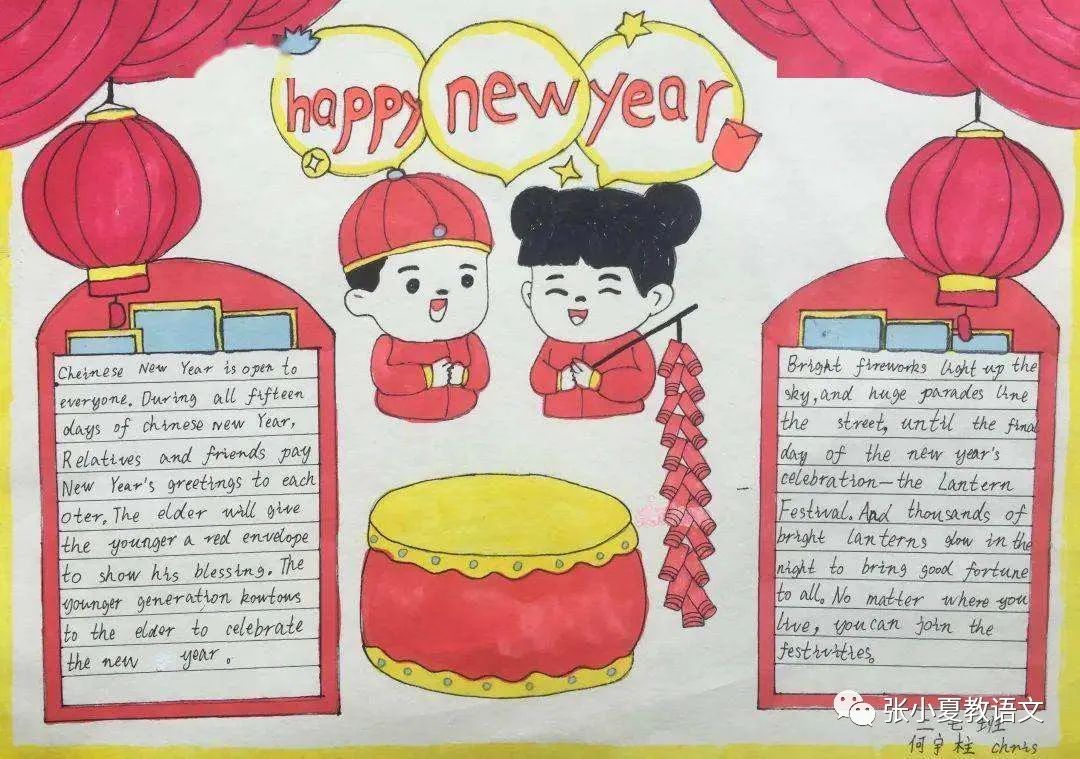 happy new year
Cheinese New Year is open to
everyone. During all fifteen
days of chinese new Year,
Relatives and friends pay
New Year's greetings to each
oter. The elder will give
the younger a red envelope
to show his blessing. The
younger generation kowtows
to the elder to celebrate
the new year.
Bright fireworks light up the
sky, and huge parades line
the street, until the final
day of the new year's
celebration—the Lantern
Festival. And thousands of
bright lanterns glow in the
night to bring good fortune
to all. No matter where you
live, you can join the
festivities.
张小夏教语文
班
何宇柱 chris